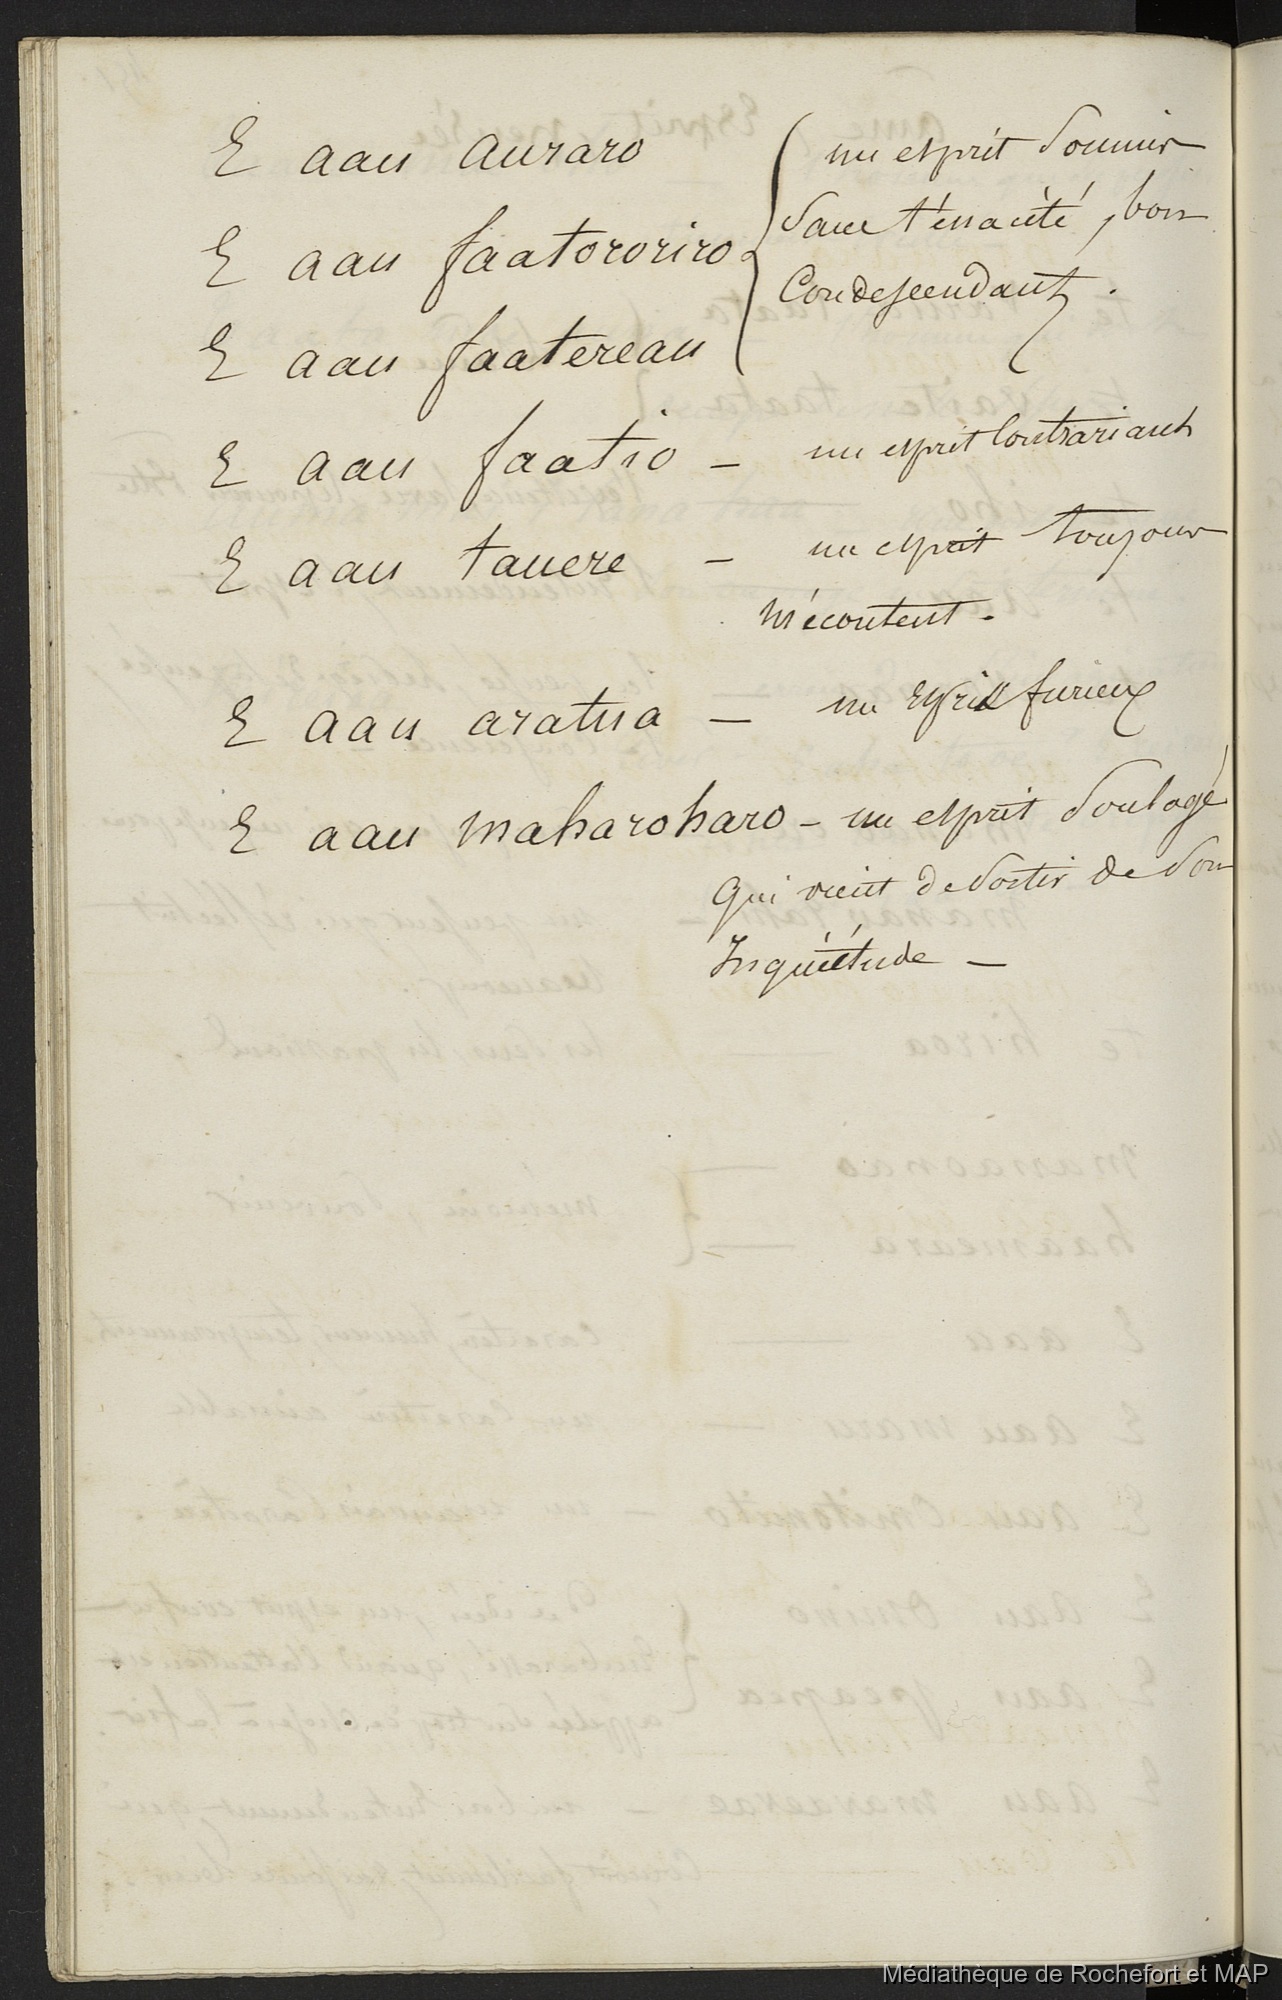 E aau auraro
E aau faatororiro
E aau faatereau
un esprit soumis
sans ténacité, bon
Condescendant.
E aau faatio – un esprit Contrariant
E aau tauere – un esprit toujours
mécontent.
E aau aratua – un Esprit furieux
E aau maharoharo – un esprit soulagé
qui vient de sortir de son
Inquiétude –
Médiathèque de Rochefort et MAP